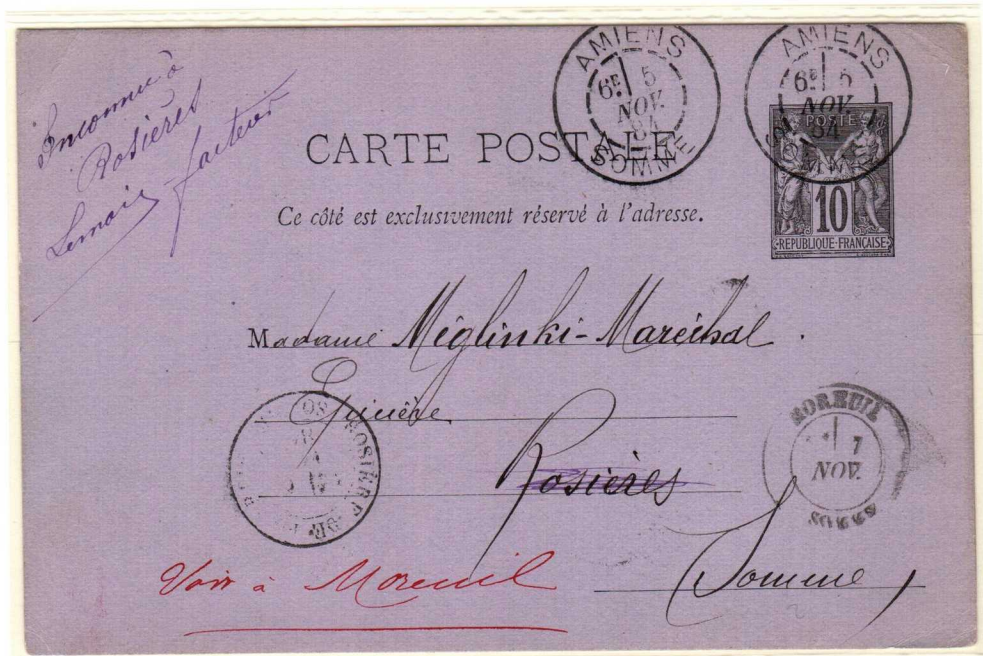 Inconnu à
Rosières
Lemair facteur
AMIENS
6E 5
NOV.
84
SOMME
AMIENS
6E 5
NOV.
84
SOMME
POSTE
10
REPUBLIQUE FRANÇAISE
CARTE POSTALE
Ce côté est exclusivement réservé à l'adresse.
Madame Méglinki-Maréchal
Epicière
Rosières
Somme
MOREUIL
7
NOV.
Voir à Moreuil